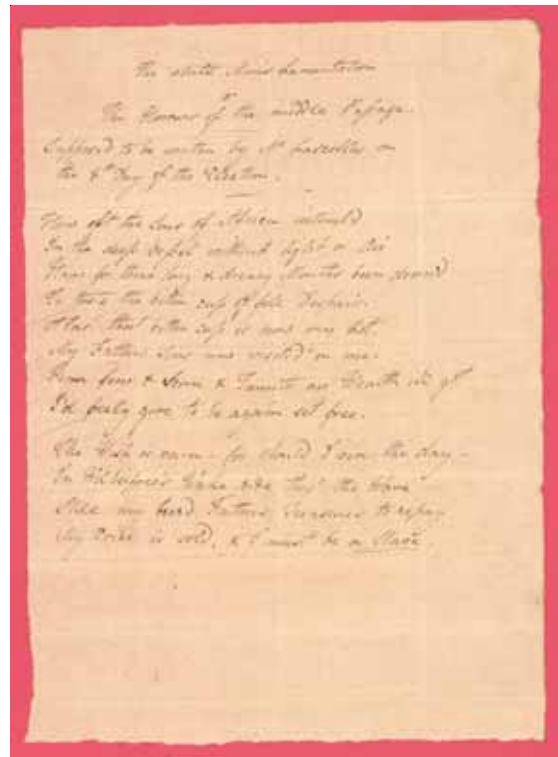 The white Mans Lamentation
or
The Horrors of the middle Passage.
Supposed to be written by Mr Lascelles on
the Day of the Election.
How oft the Sons of Africa intomb'd
In the deep without light or Air
Have for three long & dreary Months been doom'd
To taste the bitter cup of fell Despair.
Alas that bitter cup is now my lot
My Fathers Sins now visited on me.
& & Wealth ill got
I'd freely give to be again set free.
The Wish is vain - for should I win the day -
In wake ride thro' the wave
Still my hard Fathers to repay
My Voice is sold, & I must be a Slave.